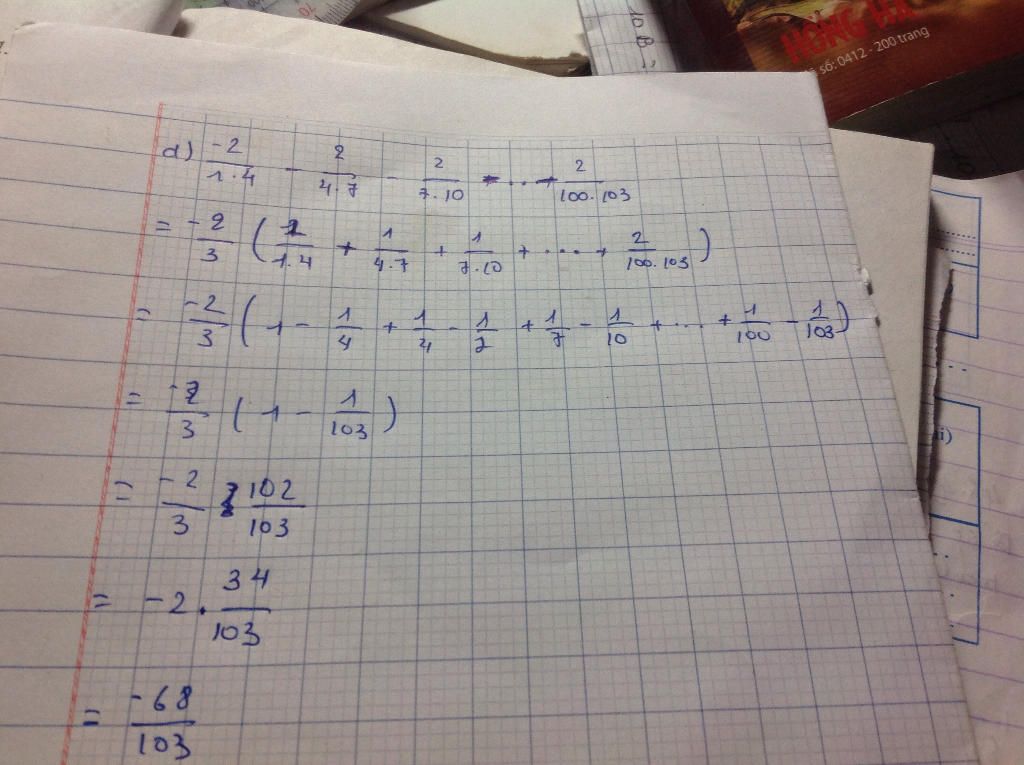 10 B
HỒNG HÀ
số: 0412 - 200 trang
d) \frac{-2}{1.4} - \frac{2}{4.7} - \frac{2}{7.10} - ... - \frac{2}{100.103}
= \frac{-2}{3} ( \frac{1}{1.4} + \frac{1}{4.7} + \frac{1}{7.10} + .... + \frac{2}{100.103} )
= \frac{-2}{3} ( 1 - \frac{1}{4} + \frac{1}{4} - \frac{1}{7} + \frac{1}{7} - \frac{1}{10} + ... + \frac{1}{100} - \frac{1}{103} )
= \frac{-2}{3} ( 1 - \frac{1}{103} )
= \frac{-2}{3} . \frac{102}{103}
= -2 . \frac{34}{103}
= \frac{-68}{103}